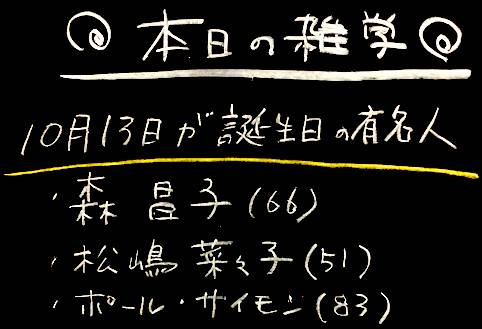 本日の雑学
10月13日が誕生日の有名人
・森 昌子(66)
・松嶋 菜々子(51)
・ポール・サイモン(83)